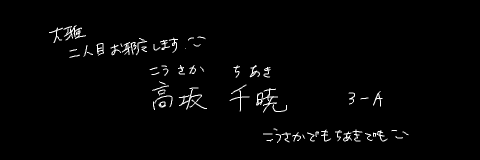 大雅
二人目お邪魔します :)
こうさか ちあき
高坂 千暁 3-A
こうさかでもちあきでも :)